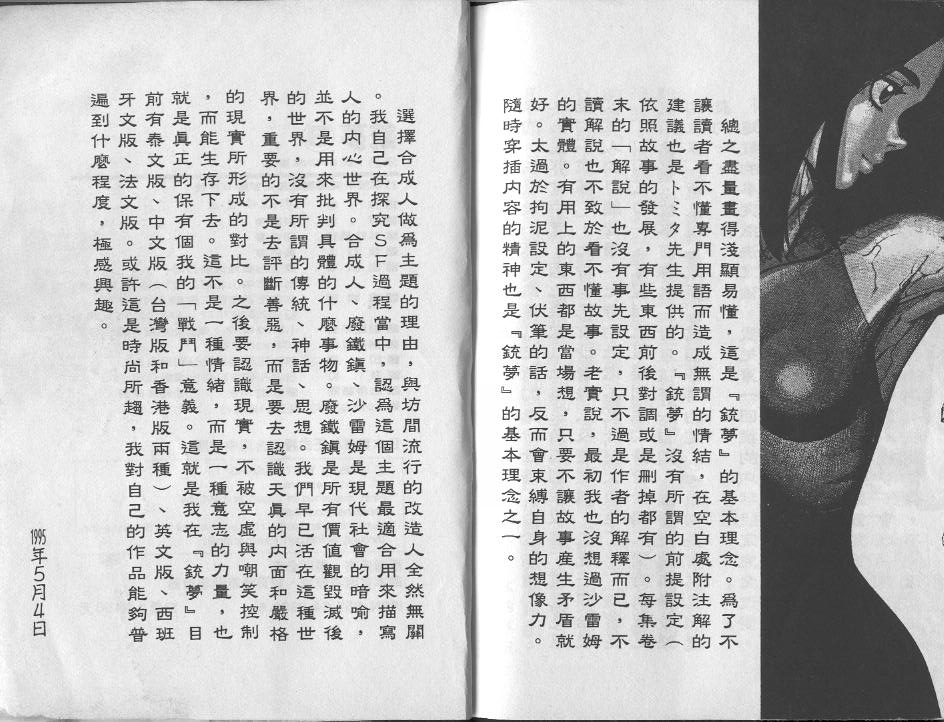 總之盡量畫得淺顯易懂，這是『銃夢』的基本理念。爲了不
讓讀者看不懂專門用語而造成無謂的情結，在空白處附注解的
建議也是トミタ先生提供的。『銃夢』沒有所謂的前提設定（
依照故事的發展，有些東西前後對調或是刪掉都有）。每集卷
末的「解說」也沒有事先設定，只不過是作者的解釋而已，不
讀解說也不致於看不懂故事。老實說，最初我也沒想過沙雷姆
的實體。有用上的東西都是當場想，只要不讓故事産生矛盾就
好。太過於拘泥設定、伏筆的話，反而會束縛自身的想像力。
隨時穿插内容的精神也是『銃夢』的基本理念之一。
選擇合成人做爲主題的理由，與坊間流行的改造人全然無關
。我自己在探究ＳＦ過程當中，認爲這個主題最適合用來描寫
人的内心世界。合成人、廢鐵鎮、沙雷姆是現代社會的暗喻，
並不是用來批判具體的什麼事物。廢鐵鎮是所有價值觀毀滅後
的世界，沒有所謂的傳統、神話、思想。我們早已活在這種世
界，重要的不是去評斷善惡，而是要去認識天真的内面和嚴格
的現實所形成的對比。之後要認識現實，不被空虛與嘲笑控制
，而能生存下去。這不是一種情緒，而是一種意志的力量，也
就是真正的保有個我的「戰鬥」意義。這就是我在『銃夢』目
前有泰文版、中文版（台灣版和香港版兩種）、英文版、西班
牙文版、法文版。或許這是時尚所趨，我對自己的作品能夠普
遍到什麼程度，極感興趣。
1995年5月4日